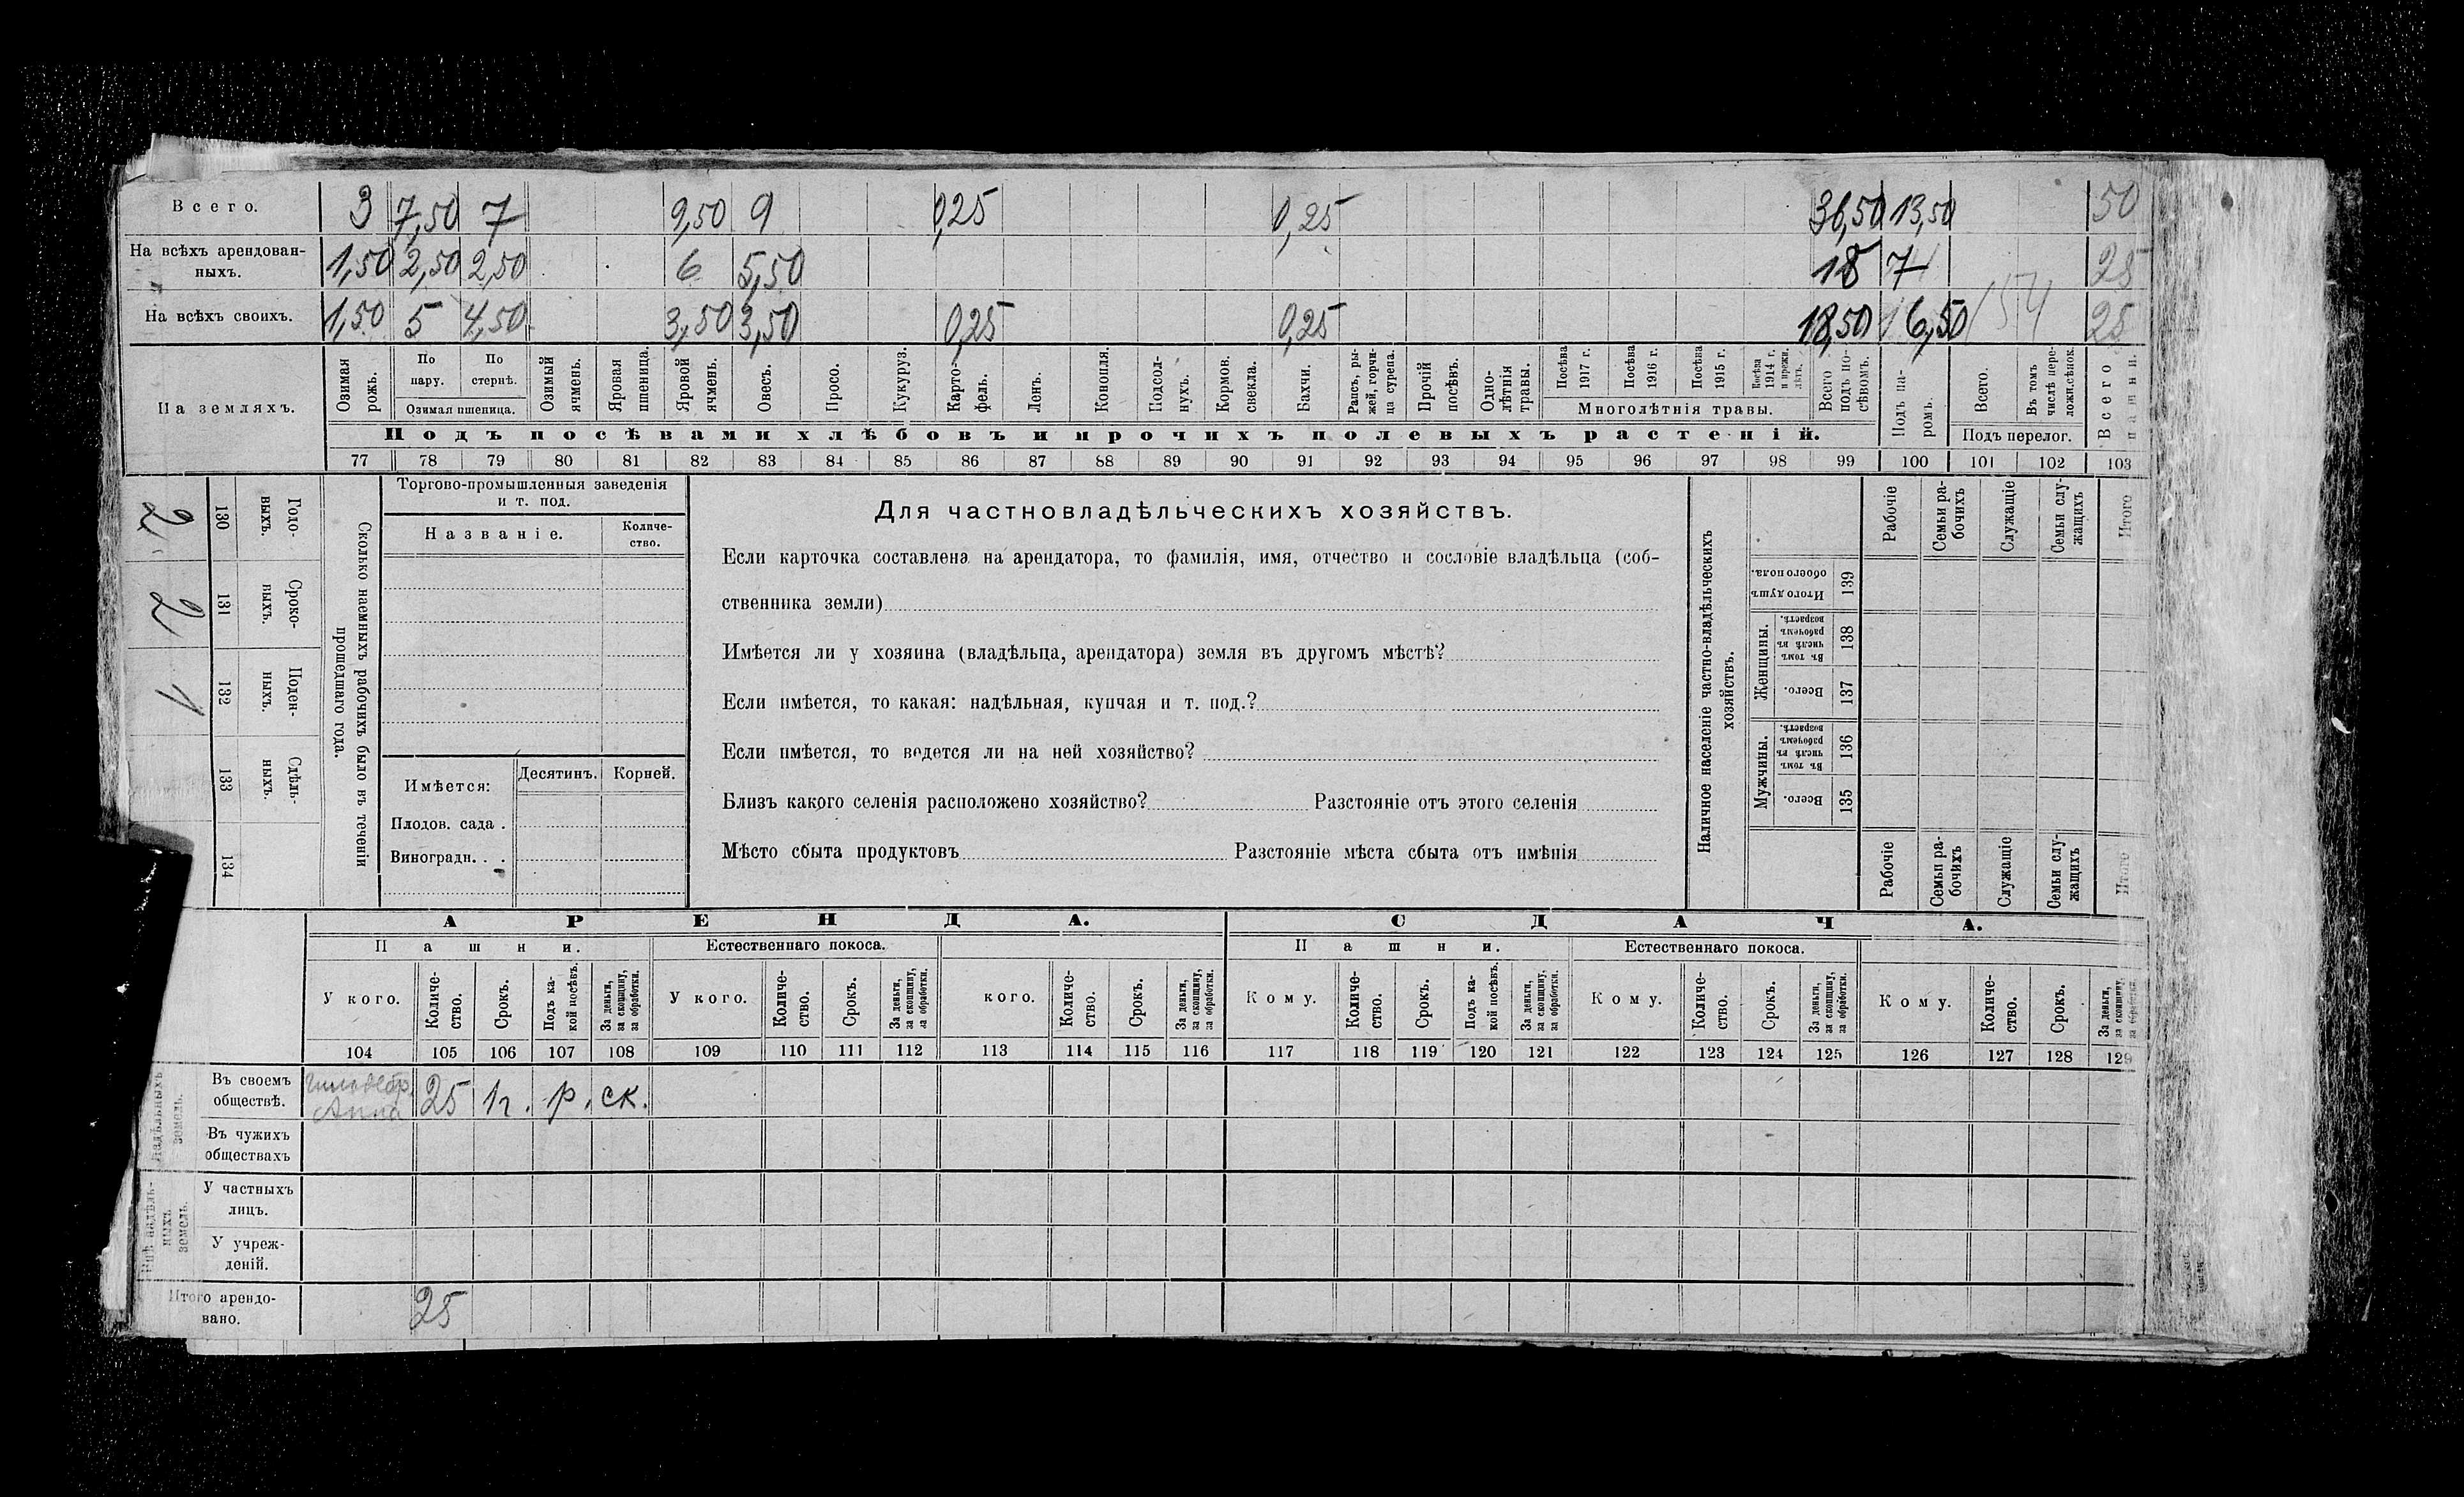 Всего. 3 7,50 7 9,50 9 0,25 0,25 36,50 13,50 50
На всѣхъ арендован-
ныхъ. 1,50 2,50 2,50 6 5,50 18 7 25
На всѣхъ своихъ. 1,50 5 4,50 3,50 3,50 0,25 0,25 18,50 6,50 154 25
На земляхъ.
Озимая рожь.
По пару.
По стернѣ.
Озимая пшеница.
Озимый ячмень.
Яровая пшеница.
Яровой ячмень.
Овесъ.
Просо.
Кукуруз.
Карто-
фель.
Ленъ.
Конопля.
Подсол-
нухъ.
Кормов. свекла.
Бахчи.
Рапсъ, ры-
жей, горчи-
ца сурепа.
Прочій посѣвъ.
Одно-
лѣтнія травы.
Посѣва 1917 г.
Посѣва 1916 г.
Посѣва 1915 г.
Посѣва 1914 г. и прежн. лѣтъ.
Многолѣтнія травы.
Всего подъ по-
сѣвомъ.
Подъ па-
ромъ.
Всего.
Въ томъ числѣ пере-
ложн.сѣнок.
Подъ перелог.
Всего пашни.
Подъ посѣвами хлѣбовъ и прочихъ полевыхъ растеній.
77 78 79 80 81 82 83 84 85 86 87 88 89 90 91 92 93 94 95 96 97 98 99 100 101 102 103
2 130 Годо-
выхъ.
2 131 Сроко-
ныхъ.
1 132 Поден-
ныхъ.
133 Сдѣль-
ныхъ.
134
Сколько наемныхъ рабочихъ было въ теченіи
прошедшаго года.
Торгово-промышленныя заведенія
и т. под.
Названіе. Количе-
ство.
Имѣется: Десятинъ. Корней.
Плодов. сада .
Виноградн. . .
Для частновладѣльческихъ хозяйствъ.
Если карточка составлена на арендатора, то фамилія, имя, отчество и сословіе владѣльца (соб-
ственника земли)
Имѣется ли у хозяина (владѣльца, арендатора) земля въ другомъ мѣстѣ?
Если имѣется, то какая: надѣльная, купчая и т. под.?
Если имѣется, то ведется ли на ней хозяйство?
Близъ какого селенія расположено хозяйство? Разстояніе отъ этого селенія
Мѣсто сбыта продуктовъ Разстояніе мѣста сбыта отъ имѣнія
Наличное населеніе частно-владѣльческихъ
хозяйствъ.
Рабочіе
Семьи ра-
бочихъ
Служащіе
Семьи слу-
жащихъ
Итого
Итого душъ обоего пола. 139
Женщины.
Въ томъ числѣ въ рабочемъ возрастѣ. 138
Всего. 137
Мужчины.
Въ томъ числѣ въ рабочемъ возрастѣ. 136
Всего. 135
Рабочіе
Семьи ра-
бочихъ
Служащіе
Семьи слу-
жащихъ
Итого
АРЕНДА. СДАЧА.
Пашни. Естественнаго покоса. Пашни. Естественнаго покоса.
У кого.
Количе-
ство.
Срокъ.
Подъ ка-
кой посѣвъ.
За деньги,
за скопщину,
за обработки.
У кого.
Количе-
ство.
Срокъ.
За деньги,
за скопщину,
за обработки.
кого.
Количе-
ство.
Срокъ.
За деньги,
за скопщину,
за обработки.
Кому.
Количе-
ство.
Срокъ.
Подъ ка-
кой посѣвъ.
За деньги,
за скопщину,
за обработки.
Кому.
Количе-
ство.
Срокъ.
За деньги,
за скопщину,
за обработки.
Кому.
Количе-
ство.
Срокъ.
За деньги,
за скопщину,
за обработки.
104 105 106 107 108 109 110 111 112 113 114 115 116 117 118 119 120 121 122 123 124 125 126 127 128 129
Надѣльныхъ
земель.
Въ своемъ
обществѣ. Анна 25 1г. р. ск.
Въ чужихъ
обществахъ
Внѣ надѣль-
ныхъ
земель.
У частныхъ
лицъ.
У учреж-
деній.
Итого арендо-
вано. 25